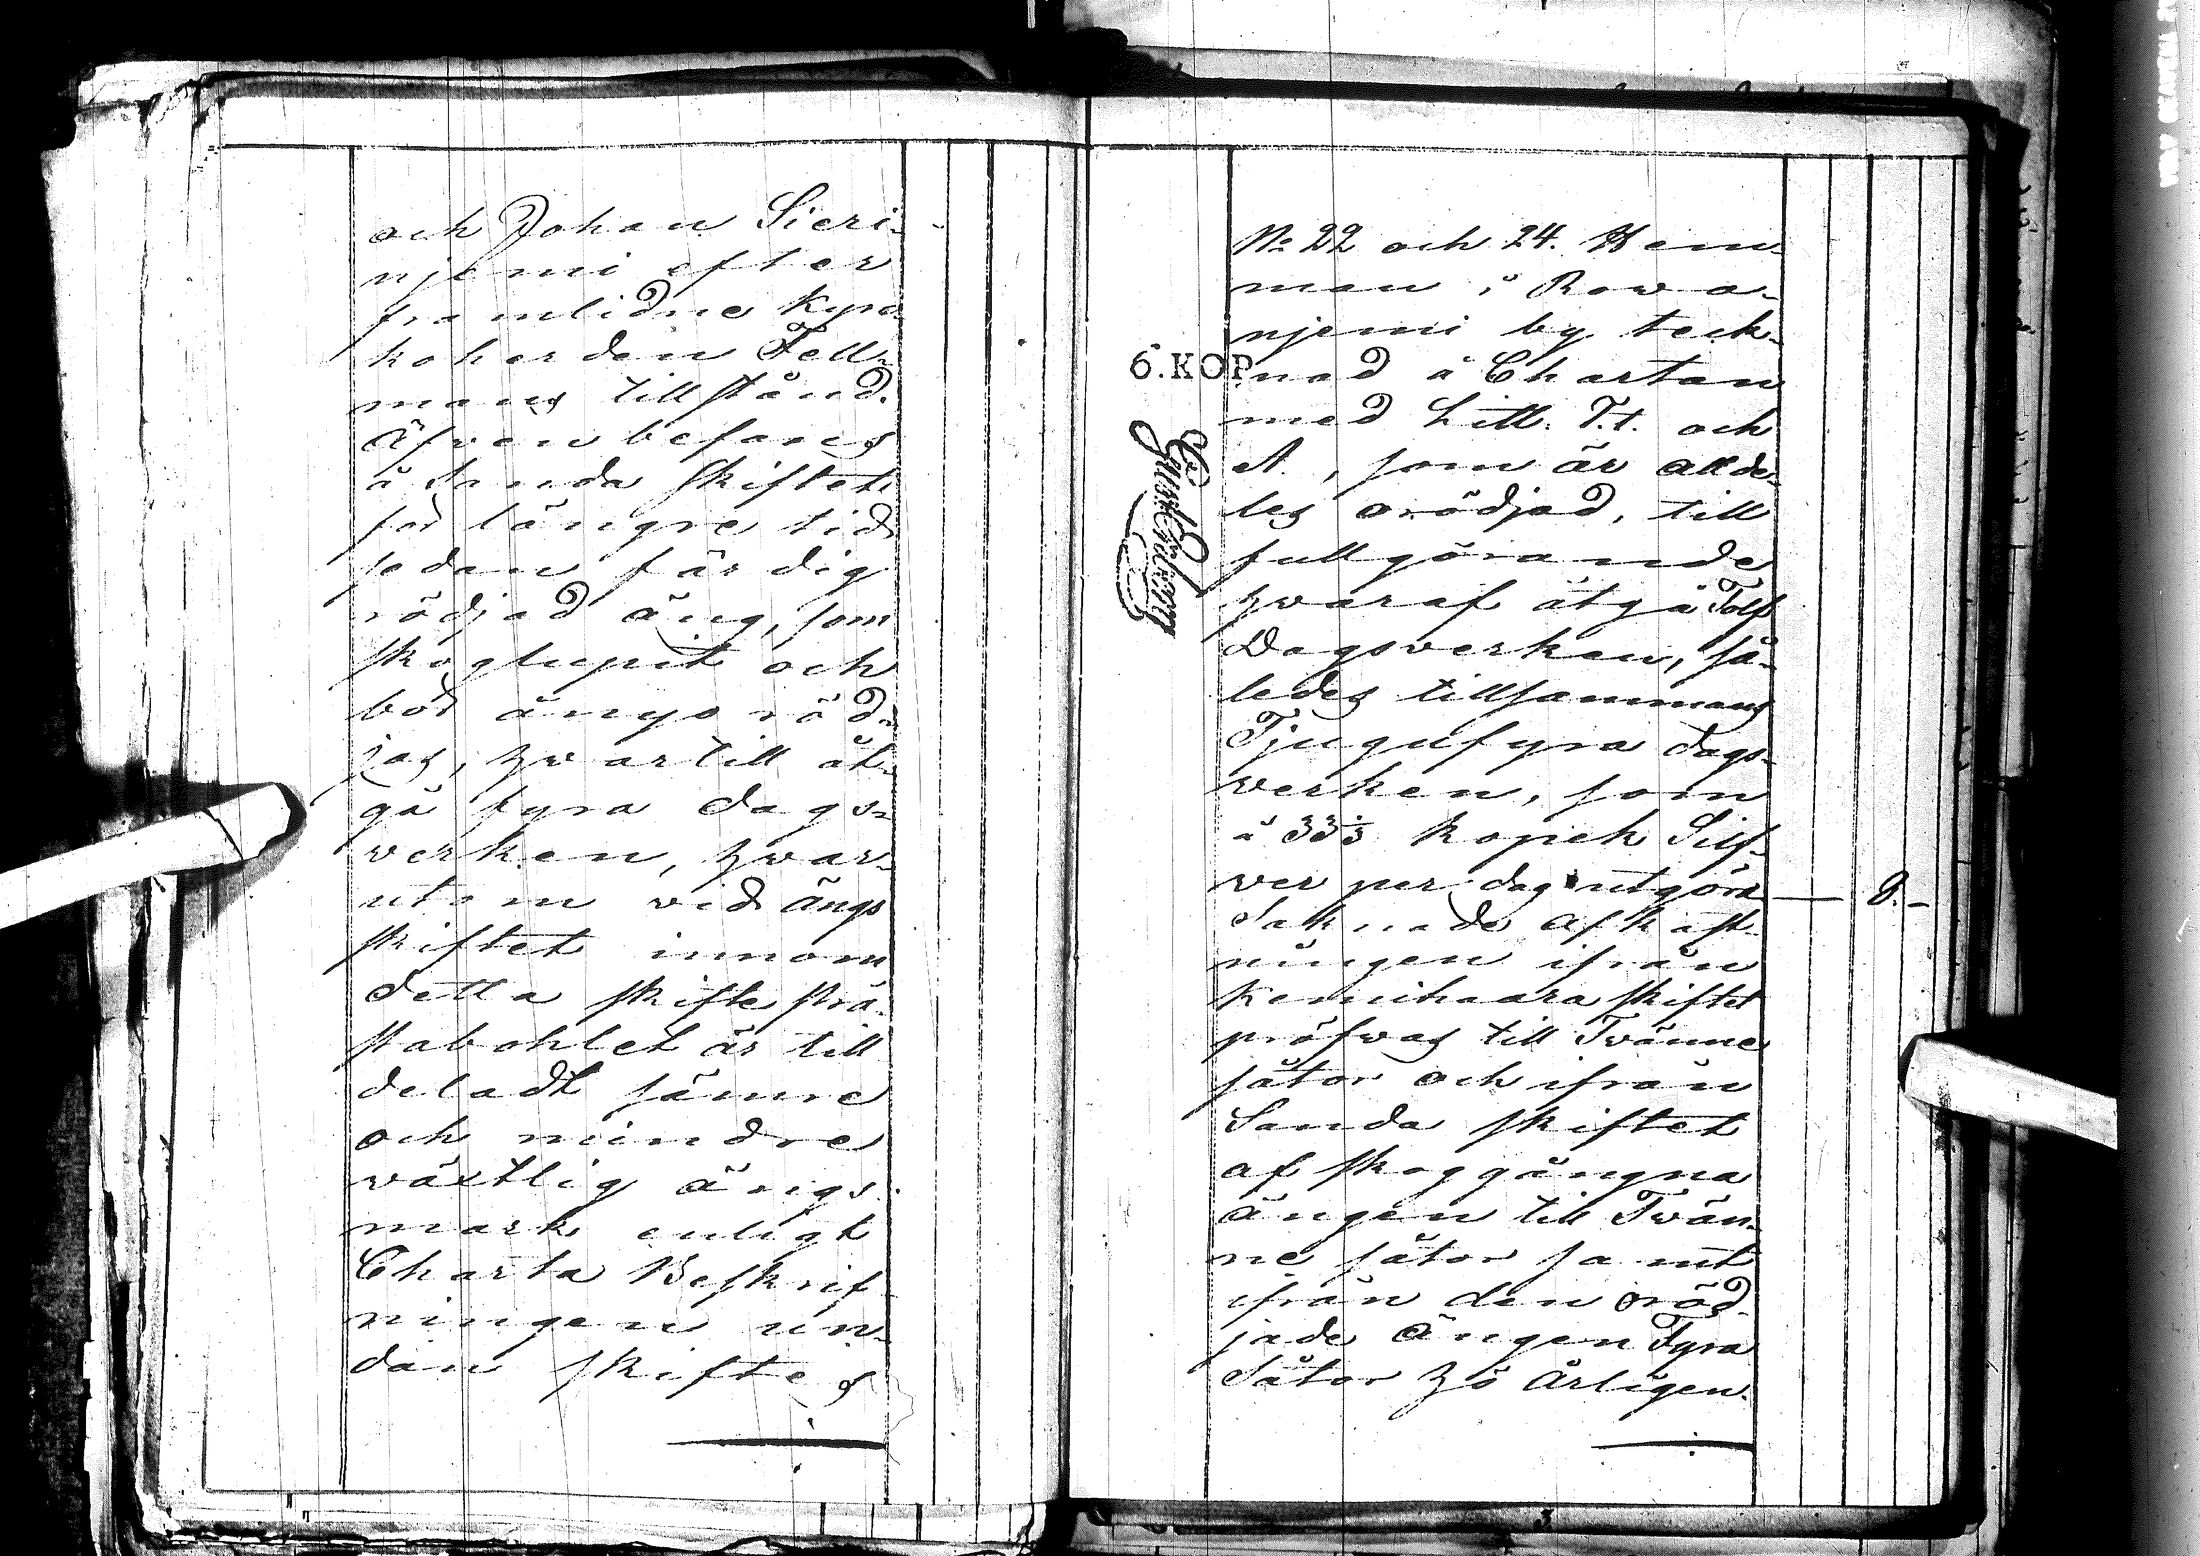 och Johan Sieri-
njemi efter
framlidne Kyrc
koherden Fell-
mans tillstånd.
Äfwen befans
å Sanda Skiftet
för längre tid
sedan färdig
rödjad äng, som
skoglupit och
bör ånyo röd-
jas, hwartill åt-
gå fyra dags-
verken, hwar-
utom vid Ängs
skiftet innom
detta skifte prä-
stabohlet är till
deladt sämre
och mindre
wäxtlig ängs-
mark enligt
Charta Beskrif-
ningen un-
dan skiftes
N: 22 och 24. Hem-
man i Rowa-
njemi by teck-
nad å Chartan
med Litt. T.t. och
A., som är allde-
les orödjad, till
fullgörande
hwaraf åtgå Tolf
Dagsverken, så-
ledes tillsammans
Tjugufyra dags-
verken, som
à 33 1/3 kopek Silf-
wer per dag utgöra — 8.-
Saknade afkast-
ningen ifrån
Kemihaara skiftet
pröfwas till Twänne
såtor och ifrån
Sanda skiftet
af skoggångna
ängen till Twän-
ne såtor samt
ifrån den oröd-
jade Ängen Fyra
Såtor hö Årligen.
6.KOP